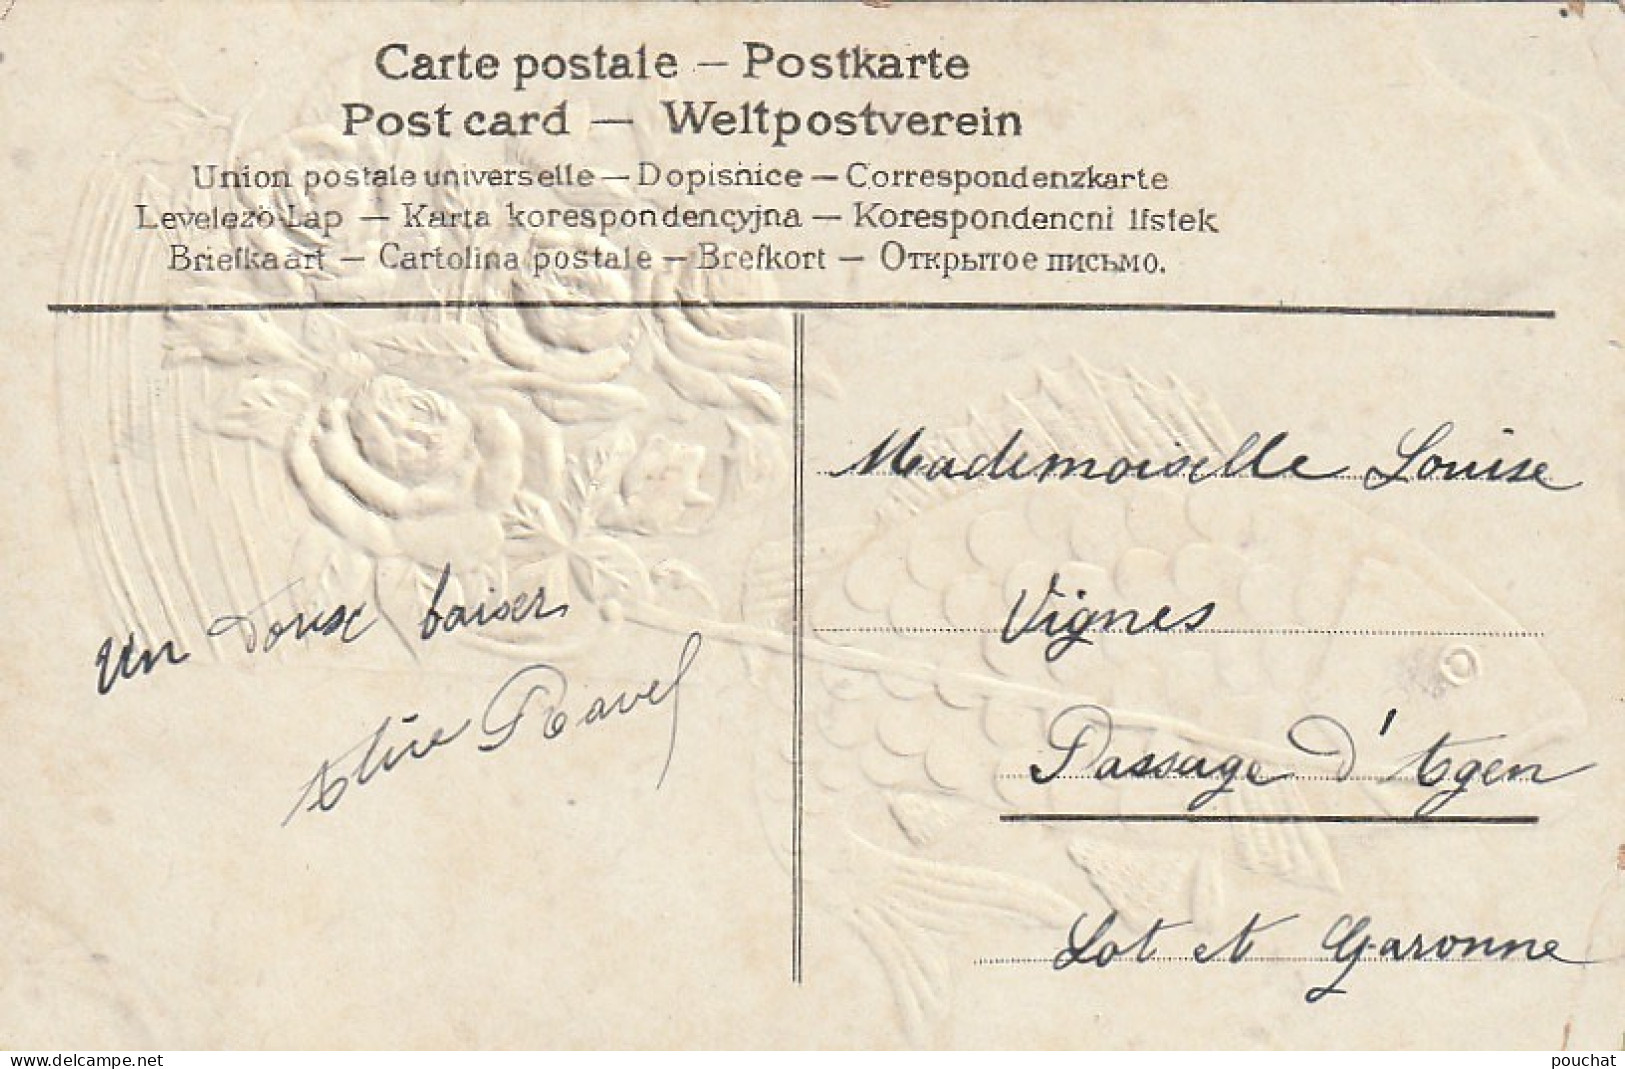 Carte postale – Postkarte
Post card — Weltpostverein
Union postale universelle — Dopisnice — Correspondenzkarte
Levelezö-Lap — Karta korespondencyjna — Korespondencni lfstek
Briefkaart — Cartolina postale — Brefkort — Открытое письмо.
Mademoiselle Louise
Vignes
Passage d'Agen
Lot et Garonne
Un doux baiser
Alice Ravel
www.delcampe.net
pouchat